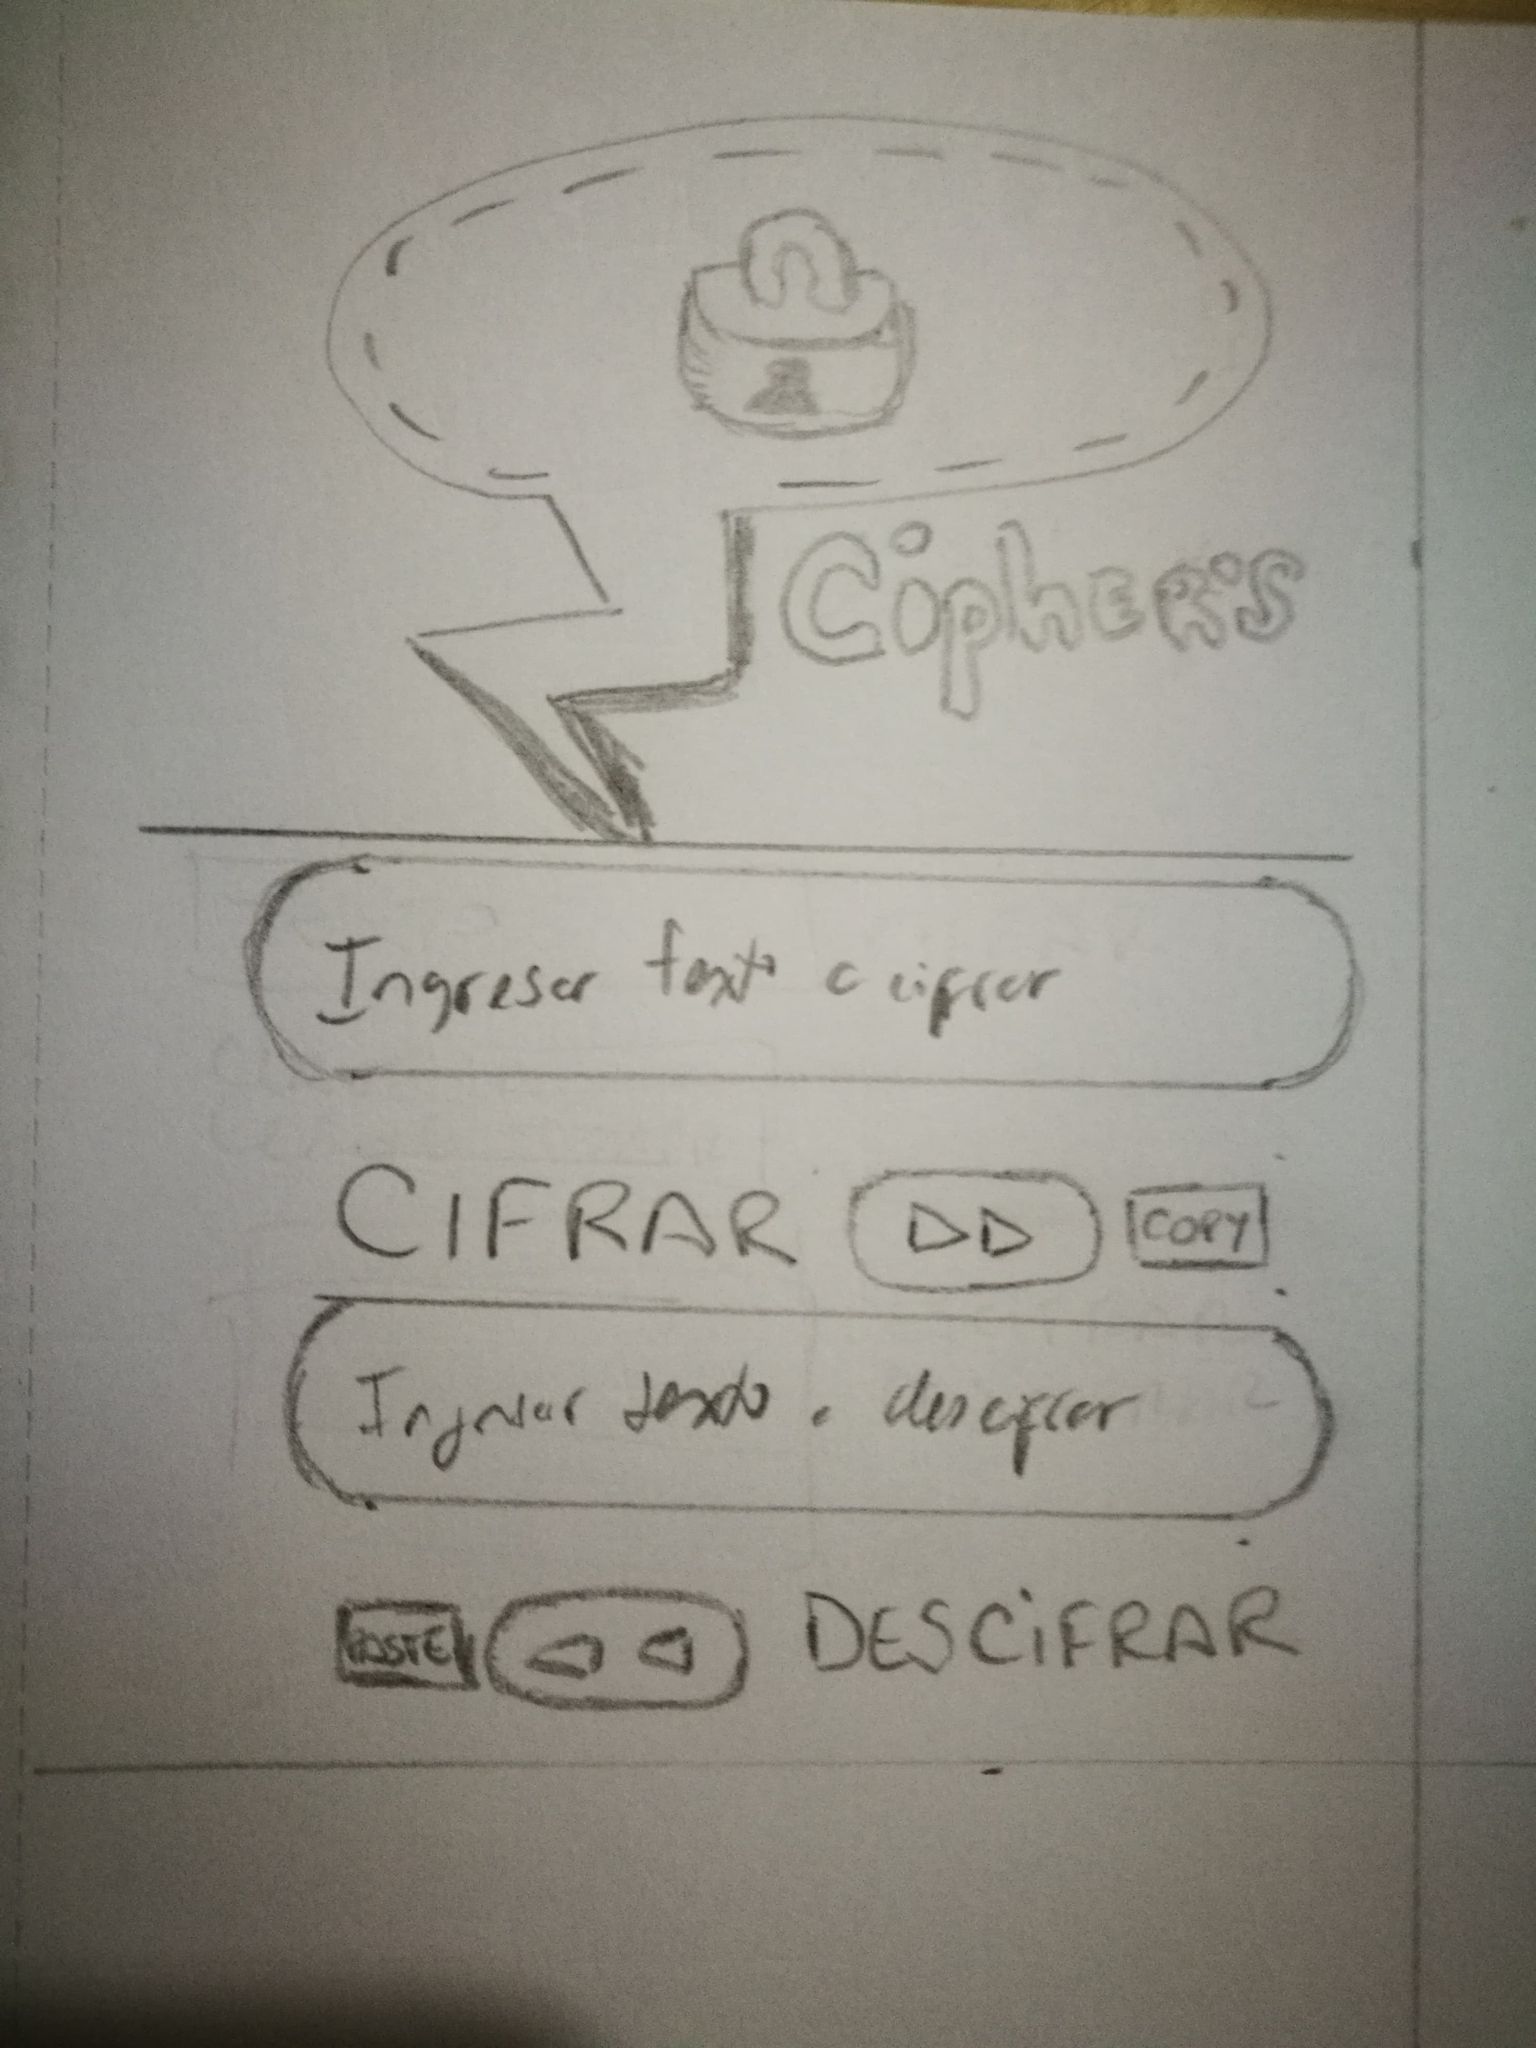 Cipher's
Ingresar texto a cifrar
CIFRAR COPY
Ingresar texto a descifrar
PASTE DESCIFRAR